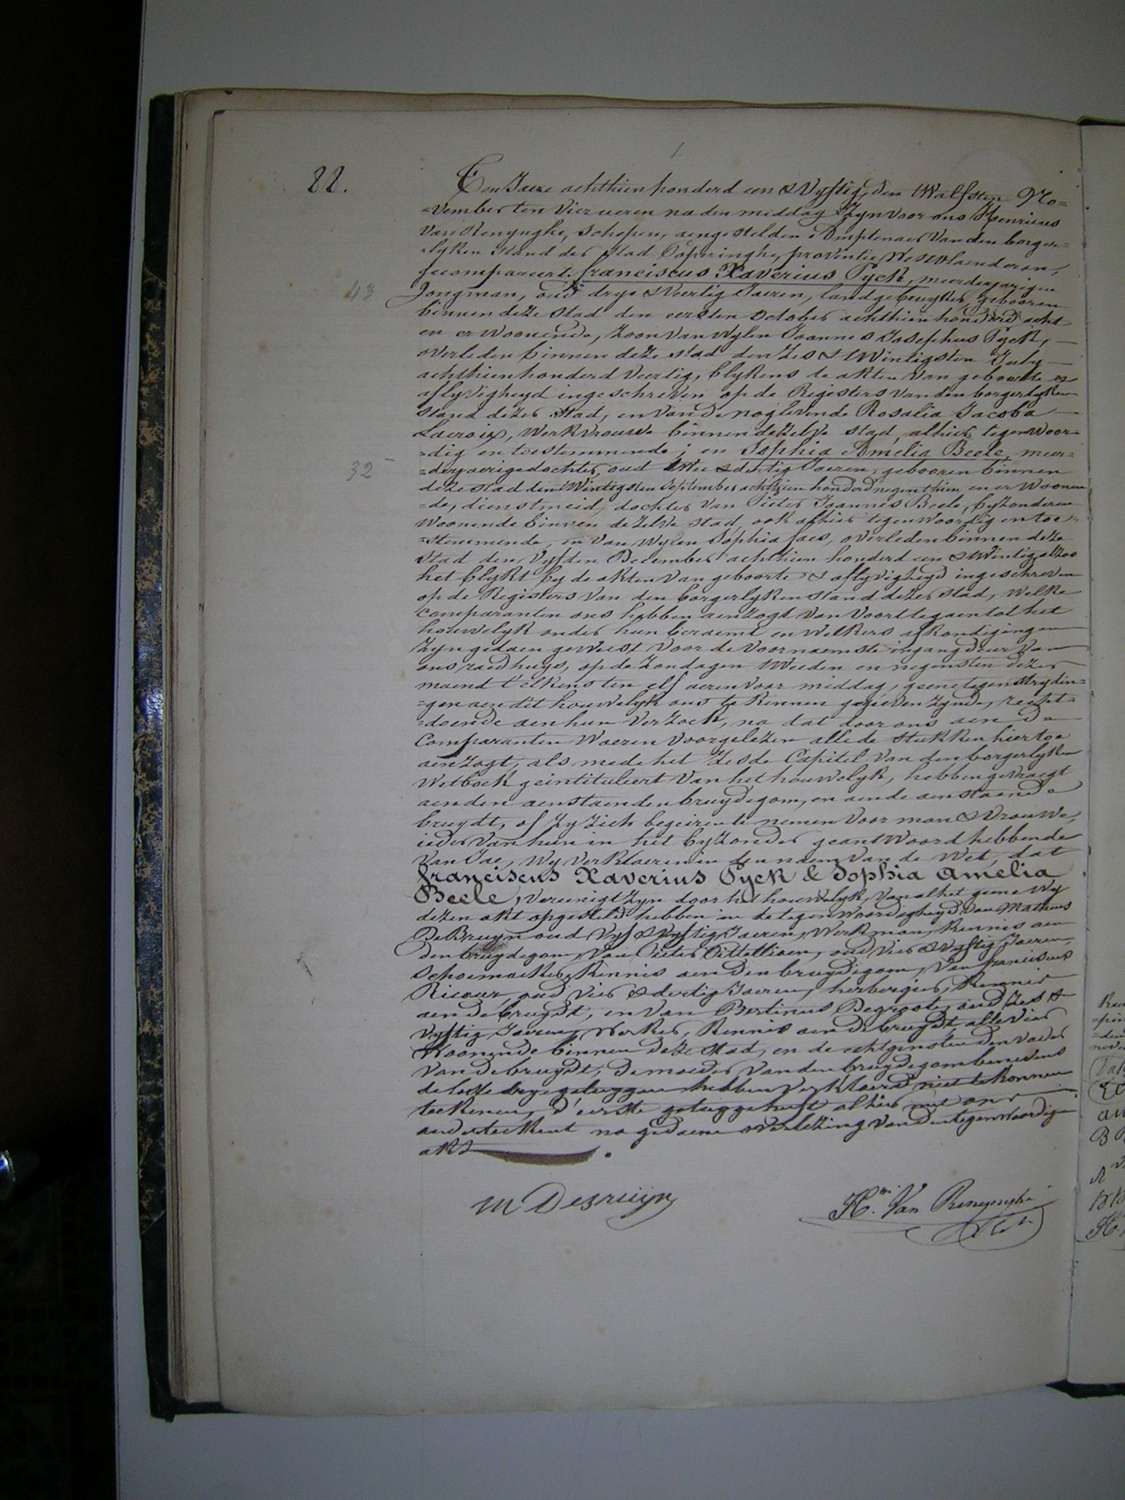 22.
Ten Jaere achthien honderd een & Vyftig, den Twalfsten No=
=vember ten vier ueren na den middag Zyn voor ons Henricus
Van Renynghe, Schepen, aengestelden Amptenaer van den borger=
=lyken Stand der Stad Poperinghe, provintie Westvlaenderen,
gecompareert: franciscus Xaverius Pyck, meerderjarigen
43
Jongman, oud drye & veertig Jaeren, landgebruyker, gebooren
binnen deze Stad den eersten October achthien honderd acht
en er Woonende, Zoon van wylen Joannes Josephus Pyck,
overleden binnen deze Stad den Zes & Twintigsten July
achthien honderd Veertig, blykens de akten van geboorte en
aflyvigheyd ingeschreven op de Registers van den borgerlyken
Stand dezer Stad, en van de noglevende Rosalia Jacoba
Lacroix, Werkvrouwe binnen dezelve Stad, alhier tegenwoor=
=dig en toestemmende; en Sophia Amelia Beele, meer=
32
=derjaerige dochter, oud Twee & dertig Jaeren, gebooren binnen
deze Stad den Twintigsten September achthien honderd negenthien, en er Woonen=
=de, dienstmeid, dochter van Pieter Joannes Beele, byzonderen
Woonende binnen dezelve Stad, ook alhier tegenwoordig en toe=
=stemmende, en van wylen Sophia Jaes, overleden binnen deze
Stad den Vyfden December achthien honderd een & Twintig alzoo
het blykt by de akten van geboorte & aflyvigheyd ingeschreven
op de Registers van den borgerlyken Stand dezer Stad, Welke
Comparanten ons hebben aenzogt van voort te gaen tot het
houwelyk onder hun beraemt en welkers afkondigingen
Zyn gedaen geweest voor de voornaemste ingangdeur van
ons raedhuys, op de Zondagen Tweeden en negensten dezer
maend t'elkens ten elf ueren voor middag, geene tegenstrydin=
=gen aen dit houwelyk ons te kennen gegeven Zynde, recht=
=doende aen hun verzoek, na dat door ons aen de
Comparanten Waeren voorgelezen alle de stukken hiertoe
aenzogt, als mede het Zesde Capitel van den borgerlyken
Wetboek geintituleert van het houwelyk, hebben gevraegt
aen den aenstaenden bruydegom, en aen de aenstaende
bruydt, of Zy Zich begeiren te nemen voor man & Vrouwe,
ieder van hun in het byzonder geantwoord hebbende
van Jae, Wy verklaeren in den naem van de Wet, dat
franciscus Xaverius Pyck & Sophia Amelia
Beele, vereenigt Zyn door het houwelyk, van al het geene Wy
dezen akt opgesteld hebben in de tegenwoordigheyd van Matheus
DeBruyn oud Vyf & Vyftig Jaeren, Werkman, kennis aen
den bruydegom, van Pieter oud Vier & Vyftig Jaeren,
Schoenmaeker, kennis aen den bruydegom, van franciscus
Ricour oud Vier & dertig Jaeren, herbergier, kennis
aen de bruydt, en van Bertinus Degroote, oud Zes &
vyftig Jaeren, Werker, kennis aen de bruydt alle vier
Woonende binnen deze Stad, en de echtgenoten den vader
van de bruydt, de moeder van den bruydegom benevens
de laetste drye getuygen hebben verklaerd niet te konnen
teekenen, d'eerste getuyge heeft alhier met ons
onderteekent na gedaene voorlezing van den tegenwoordigen
akt
M Debruijn
H.ri Van Renynghe